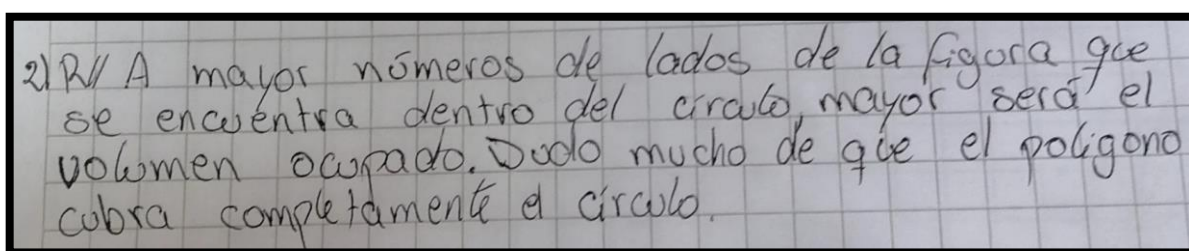 2) R// A mayor números de lados de la figura que
se encuentra dentro del circulo, mayor será el
volumen ocupado. Dudo mucho de que el poligono
cubra completamente el círculo.